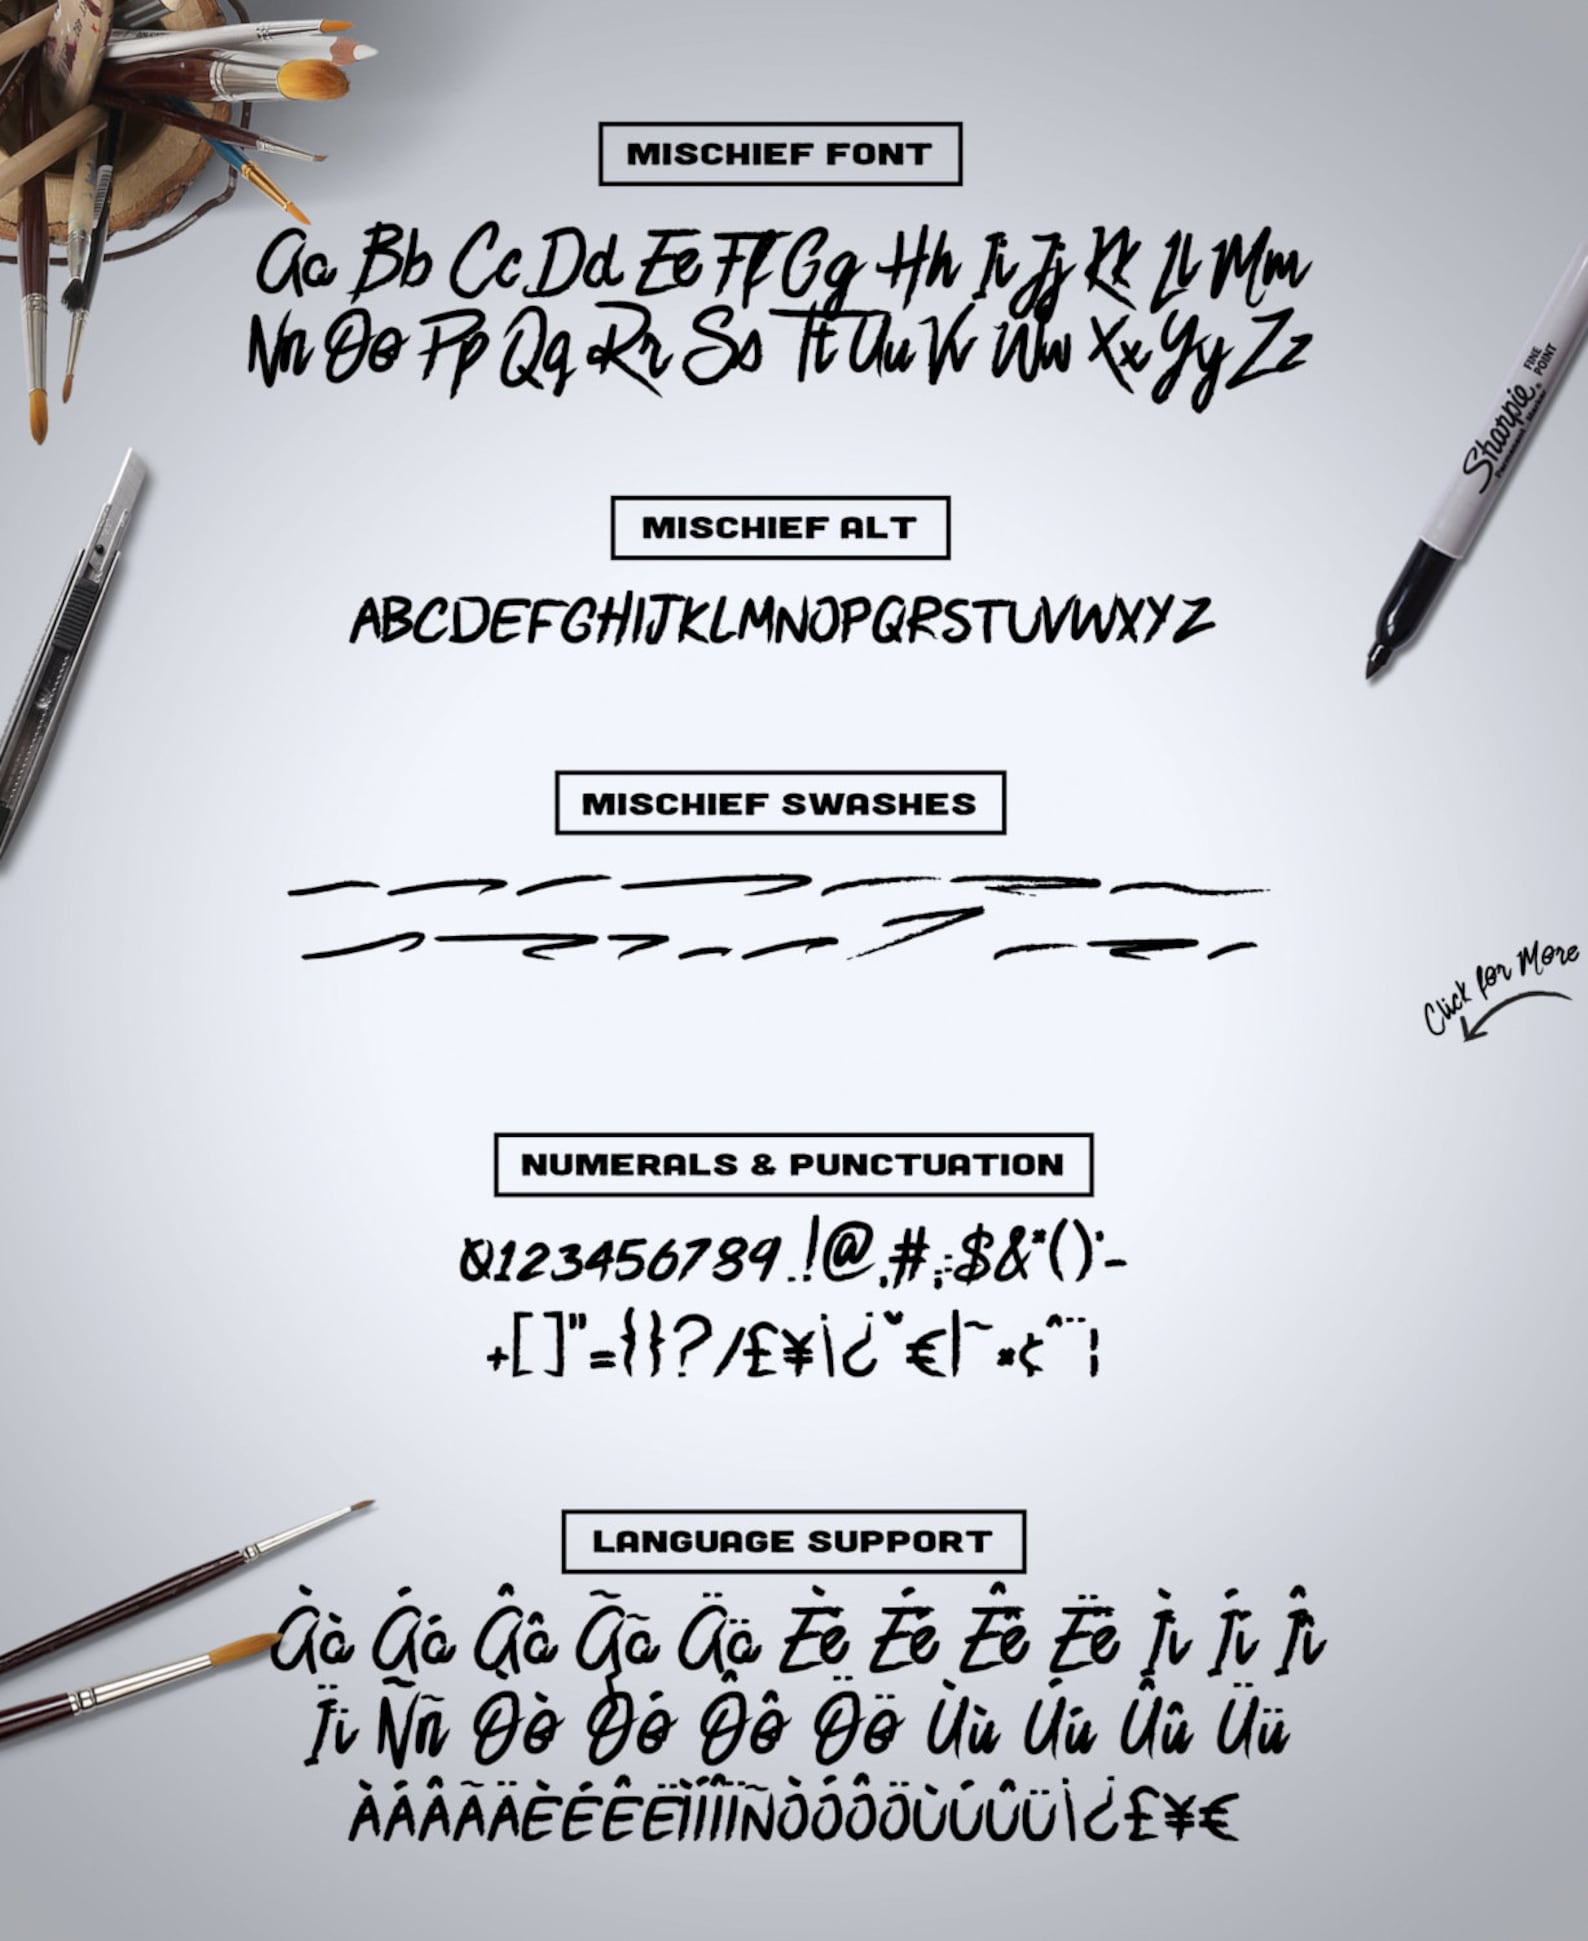 MISCHIEF FONT
Aa Bb Cc Dd Ee Ff Gg Hh Ii Jj Kk Ll Mm
Nn Oo Pp Qq Rr Ss Tt Uu Vv Ww Xx Yy Zz
Sharpie
FINE POINT
Permanent Marker
MISCHIEF ALT
ABCDEFGHIJKLMNOPQRSTUVWXYZ
MISCHIEF SWASHES
Click for More
NUMERALS & PUNCTUATION
0123456789.!@,#;:$&*()'-
+[]"={}?/£¥¡¿˘€|~×¢^¨¦
LANGUAGE SUPPORT
Àà Áá Ââ Ãã Ää Èè Éé Êê Ëë Ìì Íí Îî
Ïï Ññ Òò Óó Ôô Öö Ùù Úú Ûû Üü
ÀÁÂÃÄÈÉÊËÌÍÎÏÑÒÓÔÖÙÚÛÜ¡¿£¥€